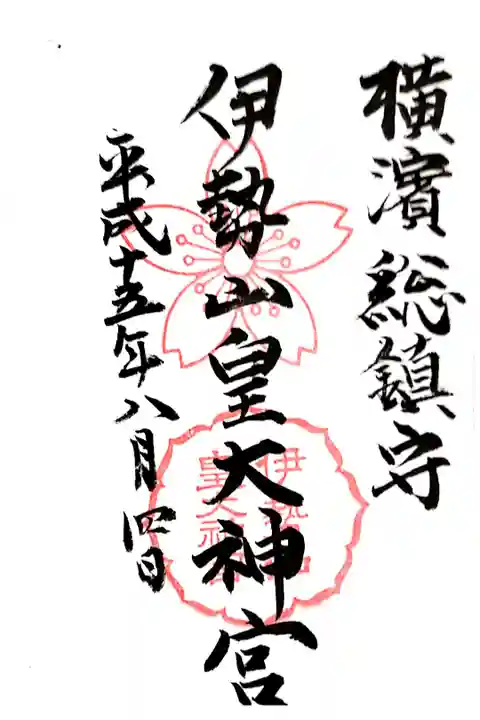 横濱総鎮守
伊勢山皇大神宮
平成十五年八月四日
伊勢山
皇大神宮